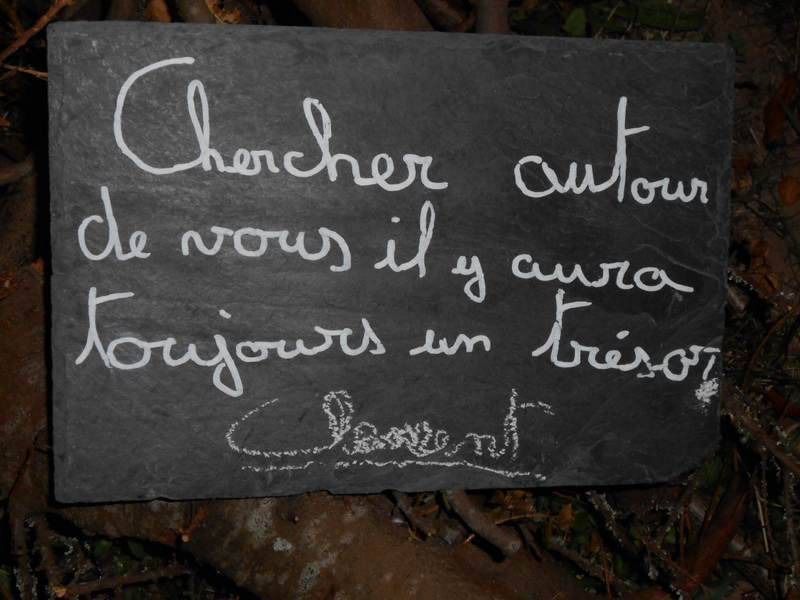 Chercher autour
de vous il y aura
toujours un trésor
Clément